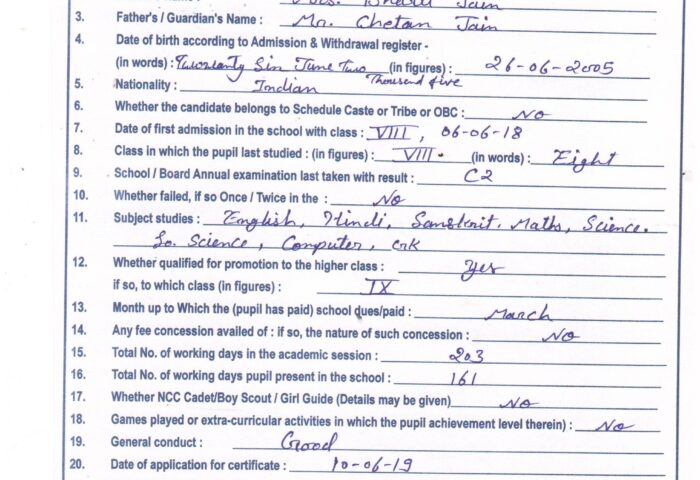 Jain
3. Father's / Guardian's Name : Mr. Chetan Jain
4. Date of birth according to Admission & Withdrawal register -
(in words) : Twenty Six June Two (in figures) : 26-06-2005
Thousand five
5. Nationality : Indian
6. Whether the candidate belongs to Schedule Caste or Tribe or OBC : No
7. Date of first admission in the school with class : VIII, 06-06-18
8. Class in which the pupil last studied : (in figures) : VIII. (in words) : Eight
9. School / Board Annual examination last taken with result : C2
10. Whether failed, if so Once / Twice in the : No
11. Subject studies : English, Hindi, Sanskrit, Maths, Science.
So. Science, Computer, GK
12. Whether qualified for promotion to the higher class : Yes
if so, to which class (in figures) : IX
13. Month up to Which the (pupil has paid) school dues/paid : March
14. Any fee concession availed of : if so, the nature of such concession : No
15. Total No. of working days in the academic session : 203
16. Total No. of working days pupil present in the school : 161
17. Whether NCC Cadet/Boy Scout / Girl Guide (Details may be given) No
18. Games played or extra-curricular activities in which the pupil achievement level therein) : No
19. General conduct : Good
20. Date of application for certificate : 10-06-19